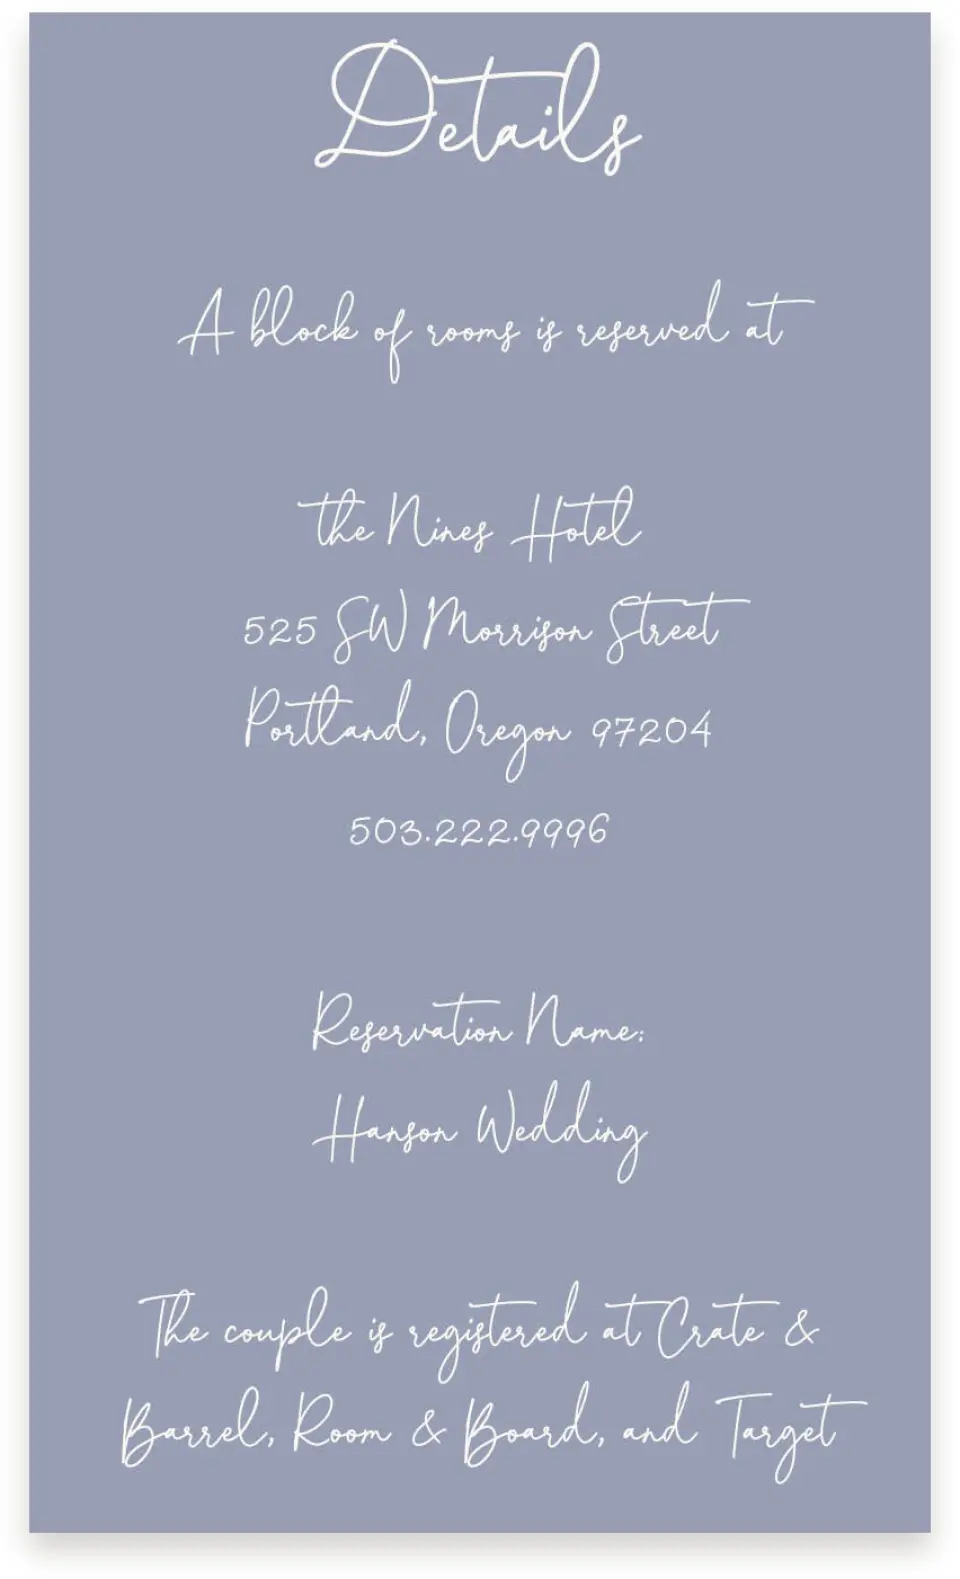 Details
A block of rooms is reserved at
the Nines Hotel
525 SW Morrison Street
Portland, Oregon 97204
503.222.9996
Reservation Name:
Hanson Wedding
The couple is registered at Crate &
Barrel, Room & Board, and Target